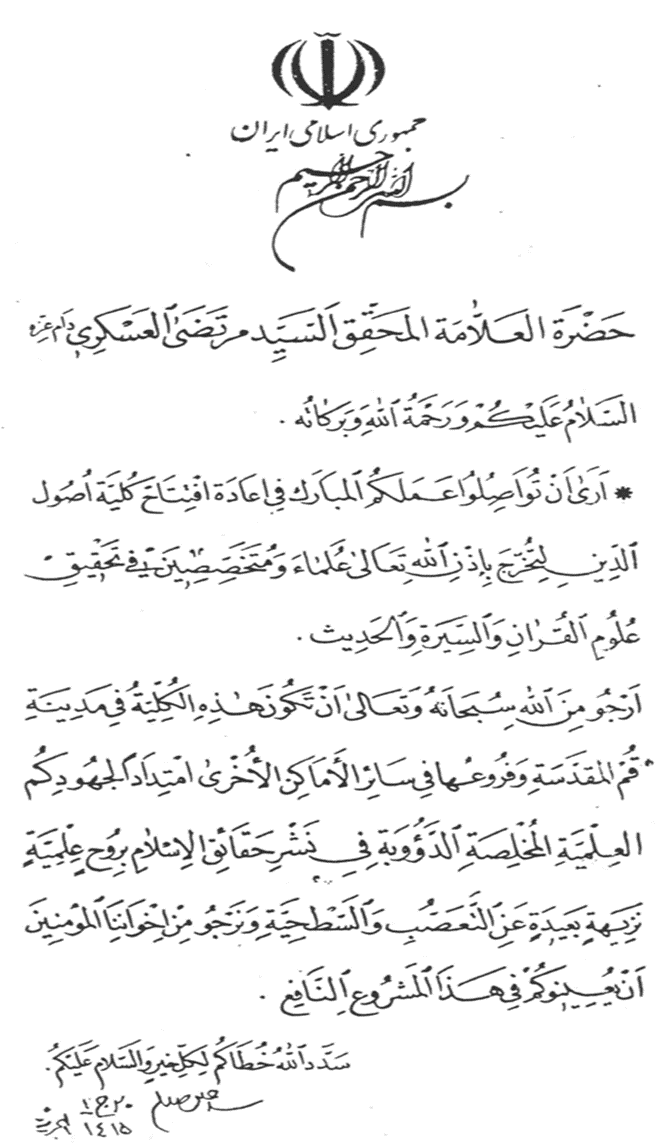 جمهوری اسلامی ایران
بسم الله الرحمن الرحیم
حَضْرَة العَلاّمَة المحَقِّق السَيِّد مرتَضَىٰ العَسْكَرِي دَام عِزه
السَلامُ عَلَيْكُمْ وَرَحْمَةُ اللهِ وَبَرَكاتُه .
* اَرىٰ اَنْ تُوَاصِلُوا عَمَلَكُم المبَارَك فِي اِعَادَة افْتِتَاحْ كُليَة اُصُول
الدِّينِ لِتُخَرِّجَ بِإذْنِ اللهِ تَعَالىٰ عُلَمَاءَ وَمُتَخَصِّصِيْنَ فِي تحَقِيْقِ
عُلُومِ القُرْانِ وَالسِّيْرَةِ وَالحَدِيث .
اَرْجُو مِنَ الله سِبُحَانَهُ وَتَعَالىٰ اَنْ تَكُونَ هٰذِهِ الكُلِيَّةُ فِي مَدِيْنَةِ
قُمْ المقَدَّسَةِ وَفُرُوعُهَا فِي سَائِرِ الأَمَاكِنِ الأُخْرىٰ امْتِدَاداً لِجُهُودِكُم
العِلْمِيَّةِ المُخْلِصَةِ الدَّؤُوبَةِ فِي نَشْرِ حَقَائِقِ الاِسْلامِ بِرُوحٍ عِلْمِيَّةٍ
نَزِيهَةٍ بَعِيدَةٍ عَنِ التَّعَصُّبِ وَالسَّطْحِيَّةِ وَنَرْجُو مِنْ اِخْوَانِنَا المُؤمِنِينَ
اَنْ يُعِينُوكُمْ فِي هَذَا المَشْرُوعِ النَّافِعِ .
سَدَّدَ اللهُ خُطَاكُم لِكُلِّ خيرٍ وَالسَّلام عَلَيْكُم .
٢٠ ج ١
١٤١٥ الهجرية